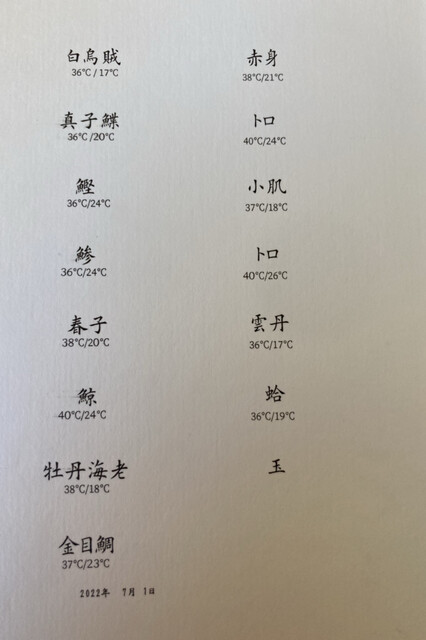 白烏賊
36℃ / 17℃
真子鰈
36℃/20℃
鰹
36℃/24℃
鯵
36℃/24℃
春子
38℃/20℃
鯨
40℃/24℃
牡丹海老
38℃/18℃
金目鯛
37℃/23℃
赤身
38℃/21℃
トロ
40℃/24℃
小肌
37℃/18℃
トロ
40℃/26℃
雲丹
36℃/17℃
蛤
36℃/19℃
玉
2022年 7月 1日